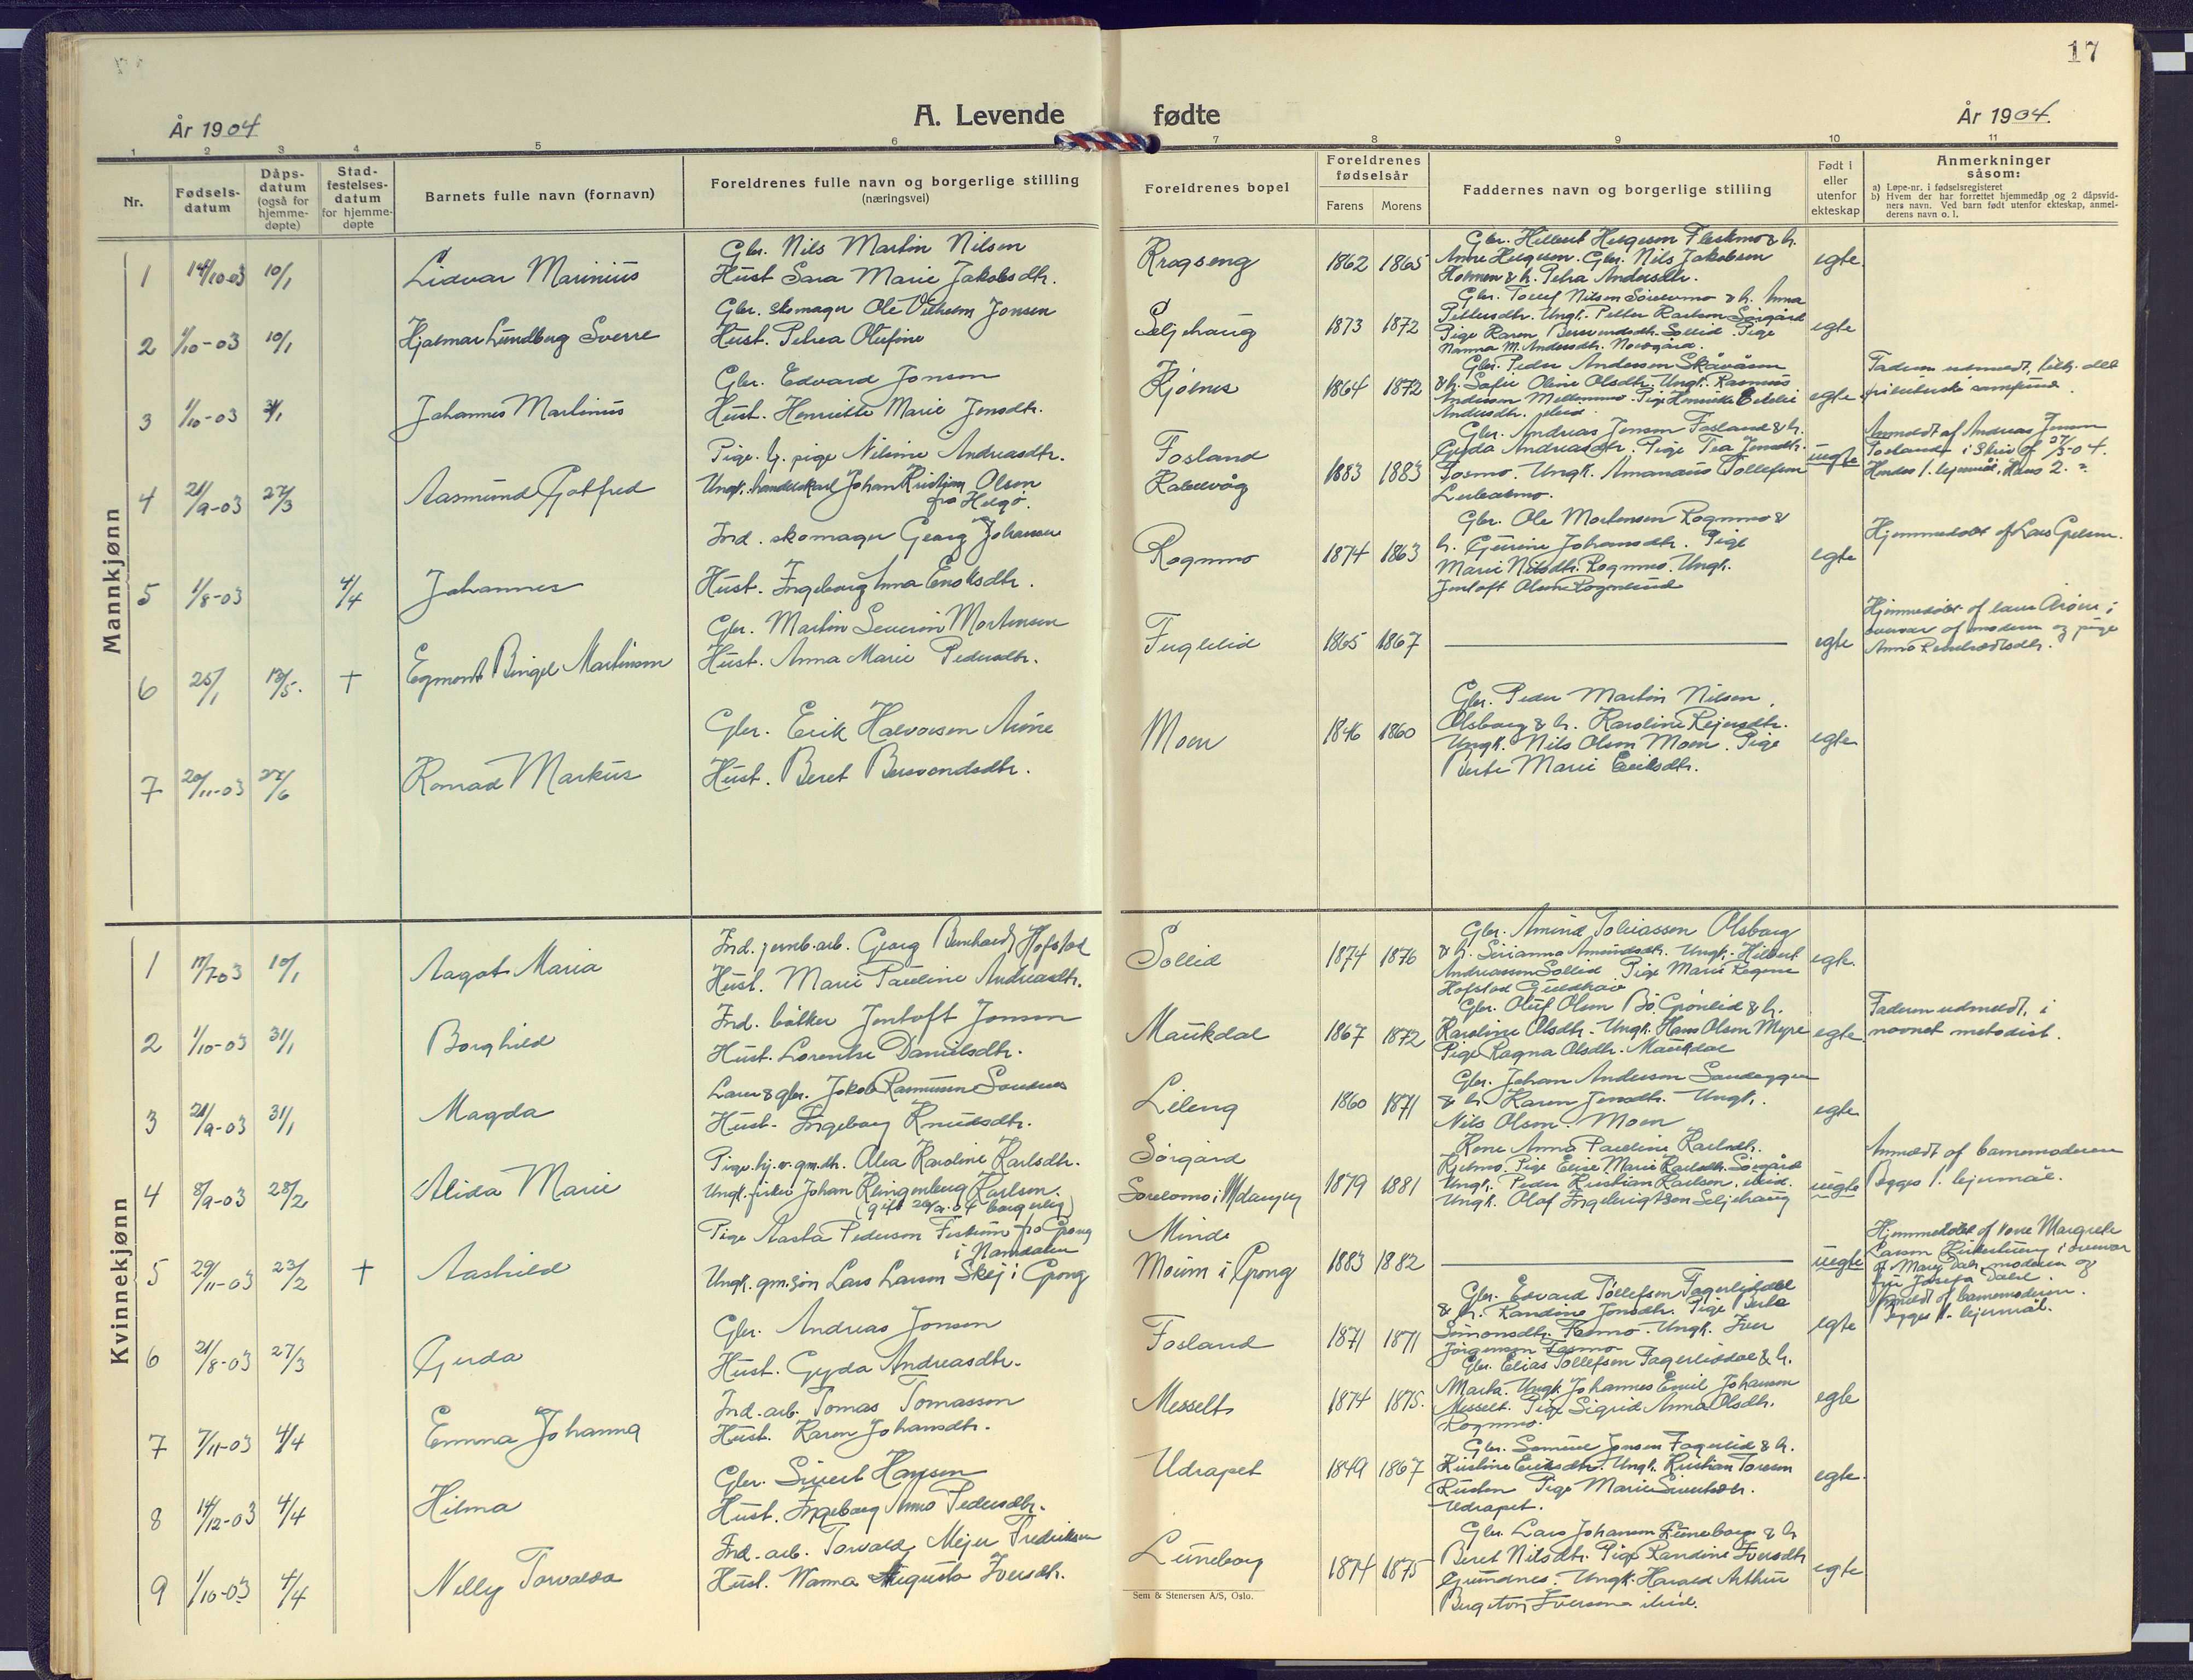 17
År 1904
A. Levende fødte
År 1904.
1 2 3 4 5 6 7 8 9 10 11
Nr.
Fødsels-datum
Dåps-datum (også for hjemme-døpte)
Stad-festelses-datum for hjemme-døpte
Barnets fulle navn (fornavn)
Foreldrenes fulle navn og borgerlige stilling (næringsvei)
Foreldrenes bopel
Foreldrenes fødselsår
Farens Morens
Faddernes navn og borgerlige stilling
Født i eller utenfor ekteskap
Anmerkninger såsom:
a) Løpe-nr. i fødselsregisteret
b) Hvem der har forrettet hjemmedåp og 2 dåpsvid-
ners navn. Ved barn født utenfor ekteskap, anmel-
derens navn o. l.
Mannkjønn
1 14/10-03 10/1 Lidvar Marinius
Gbr. Nils Martin Nilsen
Hust. Sara Marie Jakobsdtr.
Krogseng 1862 1865
Gbr. Hilbert Helgesen Fleskmo & h.
Anne Helgesen. Gbr. Nils Jakobsen
Holmen & h. Petra Andersdtr.
egte
2 1/10-03 10/1 Hjalmar Lundberg Sverre
Gbr. skomager Ole Vilhelm Jensen
Hust. Petrea Olufine
Seljehaug 1873 1872
Gbr. Tollef Nilsen & h. Anna
Pettersdtr. Ungk. Petter Karlsen Sørgård
Pige Karen Bersvendsdtr. Sollid. Pige
Nanna M. Andersdtr. Nordgård.
egte
3 1/10-03 31/1 Johannes Martinus
Gbr. Edvard Jonsen
Hust. Henriette Marie Jensdtr.
Kjølnes 1864 1872
Gbr. Peder Andersen Skåvåsen
& h. Sofie Oline Olsdtr. Ungk. Rasmus
Andersen Mellemmo. Pige Henrikke
Andersdtr.
egte
Faderen udmeldt, tilh. det
samfund.
4 21/9-03 27/3 Aasmund Gotfred
Pige. h. pige Nilsine Andreasdtr.
Ungk. handelskarl Johan Kristian Olsen
fra Helgø.
Fosland
1883 1883
Gbr. Andreas Jensen Fosland & h.
Gyda Andreasdtr. Pige Tea Jensdtr.
Fosmo. Ungk. Amandus Tollefsen
uegte
Anmeldt af Andreas Jensen
Fosland i skriv af 27/3-04.
Hendes 1. lejermål, Hans 2. ?
5 1/8-03 4/4 Johannes
Ind. skomager Georg Johansen
Hust. Ingeborg Anna Enoksdtr.
Rognmo 1874 1863
Gbr. Ole Mortensen Rognmo &
h. Gurine Johansdtr. Pige
Marie Nilsdtr. Rognmo. Ungk.
Jentoft Olsen Rognlund
egte
Hjemmedøbt af Lars
6 25/1 13/5. + Egmont Bingel Martinsen
Gbr. Martin Severin Mortensen
Hust. Anna Marie Pedersdtr.
Fuglelid 1865 1867
egte
Hjemmedøbt af i
overvær af moderen og pige
Anna
7 20/11-03 27/6 Konrad Markus
Gbr. Erik Halvorsen Moen
Hust. Beret Bersvendsdtr.
Moen 1846 1860
Gbr. Peder Martin Nilsen
Olsborg & h. Karoline Rejersdtr.
Ungk. Nils Olsen Moen. Pige
Berte Marie Eriksdtr.
egte
Kvinnekjønn
1 17/7-03 10/1 Aagot Maria
Ind. jernb.arb. Georg Bernhard Hofstad
Hust. Marie Pauline Andreasdtr.
Sollid 1874 1876
Gbr. Amund Tobiassen Olsborg
& h. Sirianna Amundsdtr. Ungk. Hilbert
Andreassen Sollid. Pige Marie Regine
Hofstad Guldhav
egte
2 1/10-03 31/1 Borghild
Ind. bøkker Jentoft Jensen
Hust. Lorentse Danielsdtr.
Maukdal 1867 1872
Gbr. Oluf Olsen Bø. Grønlid & h.
Karoline Olsdtr. Ungk. Hans Olsen Myre
Pige Ragna Olsdtr. Maukdal
egte
Faderen udmeldt, i
navnet metodist.
3 21/9-03 31/1 Magda
Lærer & gbr. Jakob Rasmussen Sandnes
Hust. Ingeborg Knudsdtr.
Lileng 1860 1871
Gbr. Johan Andersen Sandeggen
& h. Karen Jensdtr. Ungk.
Nils Olsen. Moen
egte
4 8/9-03 28/2 Alida Marie
Pige. hj. v. gm.dtr. Alea Karoline Karlsdtr.
Ungk. fisker Johan Klingenberg Karlsen.
(gift 26/2-04 borgerlig)
Sørgård
1879 1881
Kone Anna Pauline Karlsdtr.
Kjelmo. Pige Elise Marie Karlsdtr. Sørgård
Ungk. Peder Kristian Karlsen, ibid.
Ungk. Olaf Ingebrigtsen Seljehaug
uegte
Anmeldt af barnemoderen
Begges 1. lejermål.
5 29/11-03 23/2 + Aashild
Pige Aasta Pedersen Fiskum fra Grong
i Namdalen
Ungk. gm.søn Lars Larsen Skej i Grong
Minde
Moum i Grong 1883 1882
uegte
Hjemmedøbt af kone Margrete
Larsen i overvær
af Mary Dahl, moderen og
fru Josefa Dahl.
Anmeldt af barnemoderen.
Begges 1. lejermål.
6 21/8-03 27/3 Gerda
Gbr. Andreas Jensen
Hust. Gyda Andreasdtr.
Fosland 1871 1871
Gbr. Edvard Tollefsen Fagerliddal
& h. Randine Jonsdtr. Pige Berte
Simonsdtr. Fosmo. Ungk. Iver
Jørgensen Fosmo
egte
7 7/11-03 4/4 Emma Johanna
Ind. arb. Tomas Tomassen
Hust. Karen Johansdtr.
Messelt 1874 1875.
Gbr. Elias Tollefsen Fagerliddal & h.
Marta. Ungk. Johannes Emil Johansen
Messelt. Pige Sigrid Anna Olsdtr.
Rognmo.
egte
8 14/12-03 4/4 Hilma
Gbr. Sivert Hansen
Hust. Ingeborg Anna Pedersdtr.
Udrapet 1849 1867
Gbr. Samuel Jensen Fagerlid & h.
Kristine Eriksdtr. Ungk. Kristian Toresen
Rusten Pige Marie Sivertsdtr.
Udrapet.
egte
9 1/10-03 4/4 Nelly Torvalda
Ind. arb. Torvald Mejer Fredriksen
Hust. Wanna Augusta Iversdtr.
Luneborg 1874 1875
Gbr. Lars Johansen Luneborg & h
Beret Nilsdtr. Pige Randine Iversdtr
Grundnes. Ungk. Harald Arthur
Bergiton Iversen ibid.
egte
Sem & Stenersen A/S, Oslo.